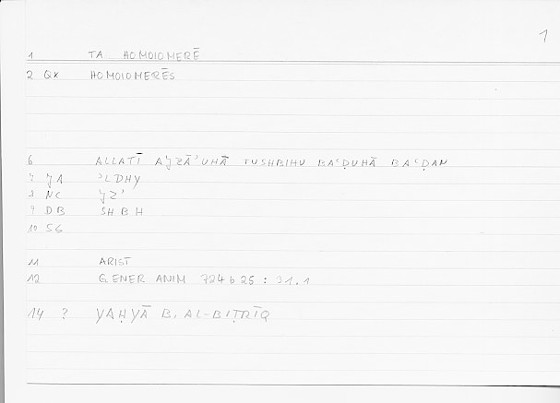 1
1 TA HOMOIOMERĒ
2 QX HOMOIOMERĒS
6 ALLATĪ AǧZĀʾUHĀ TUSHBIHU BAʿḌUHĀ BAʿḌAN
7 ǧA ʾLDHY
8 NC ǧZʾ
9 DB SHBH
10 56
11 ARIST
12 GENER ANIM 724 b 25 : 31.1
14 ? YAḤYĀ B. AL-BIṬRĪQ